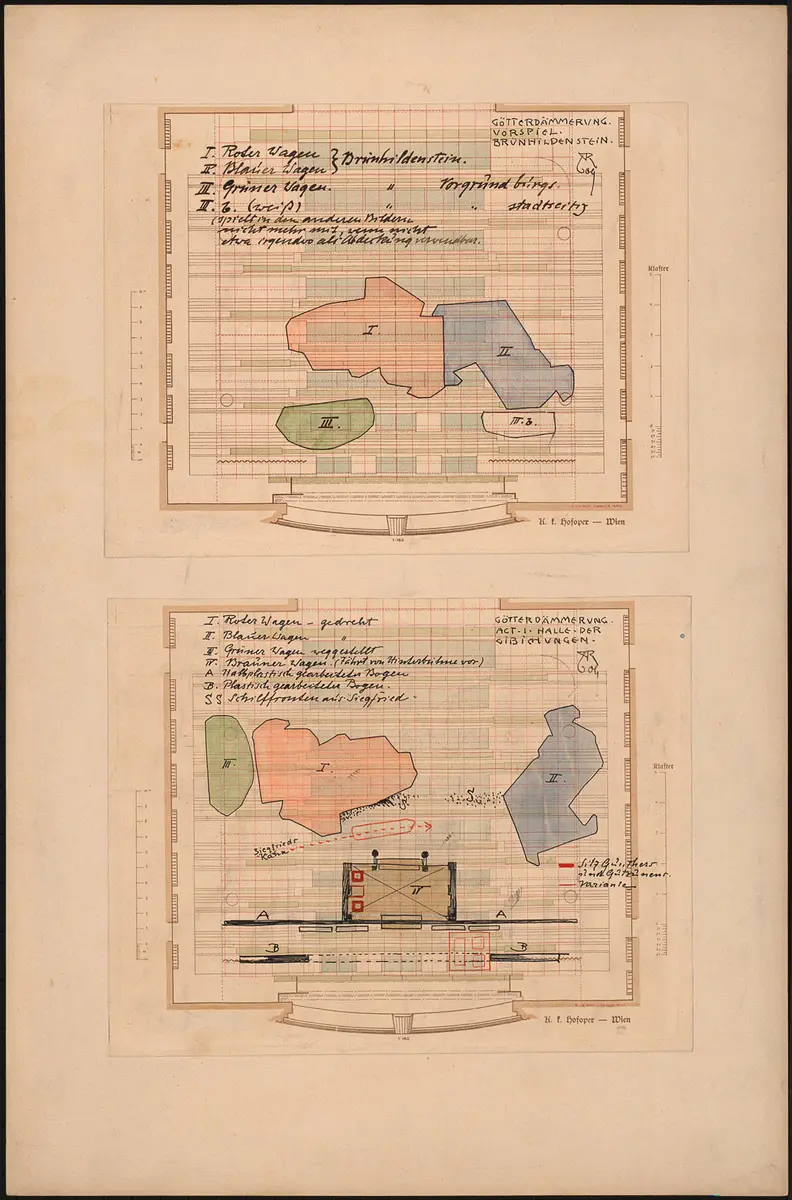 GÖTTERDÄMMERUNG.
VORSPIEL.
BRÜNHILDENSTEIN.
I. Roter Wagen } Brünhildenstein.
II. Blauer Wagen
III. Grüner Wagen. " Vorgrund burgs.
III. b. (weiß) " " stadtseitig
(spielt in den anderen Bildern
nicht mehr mit, wenn nicht
etwa irgendwo als Abdeckung verwendbar.
AR
Klafter
I.
II.
III.
III. b.
K. k. Hofoper — Wien
I. Roter Wagen – gedreht
II. Blauer Wagen "
III. Grüner Wagen weggestellt
IV. Brauner Wagen. (Fährt von Hinterbühne vor)
A Halbplastisch gearbeiteter Bogen
B. Plastisch gearbeiteter Bogen.
SS Schilffronten aus Siegfried.
GÖTTERDÄMMERUNG.
ACT. I. HALLE. DER
GIBICHUNGEN.
AR
Klafter
III.
I.
II.
S.
S.
Siegfrieds
Kahn
IV
Sitz Gunthers
und Gutrunens.
Variante
A
A
B
B
K. k. Hofoper — Wien